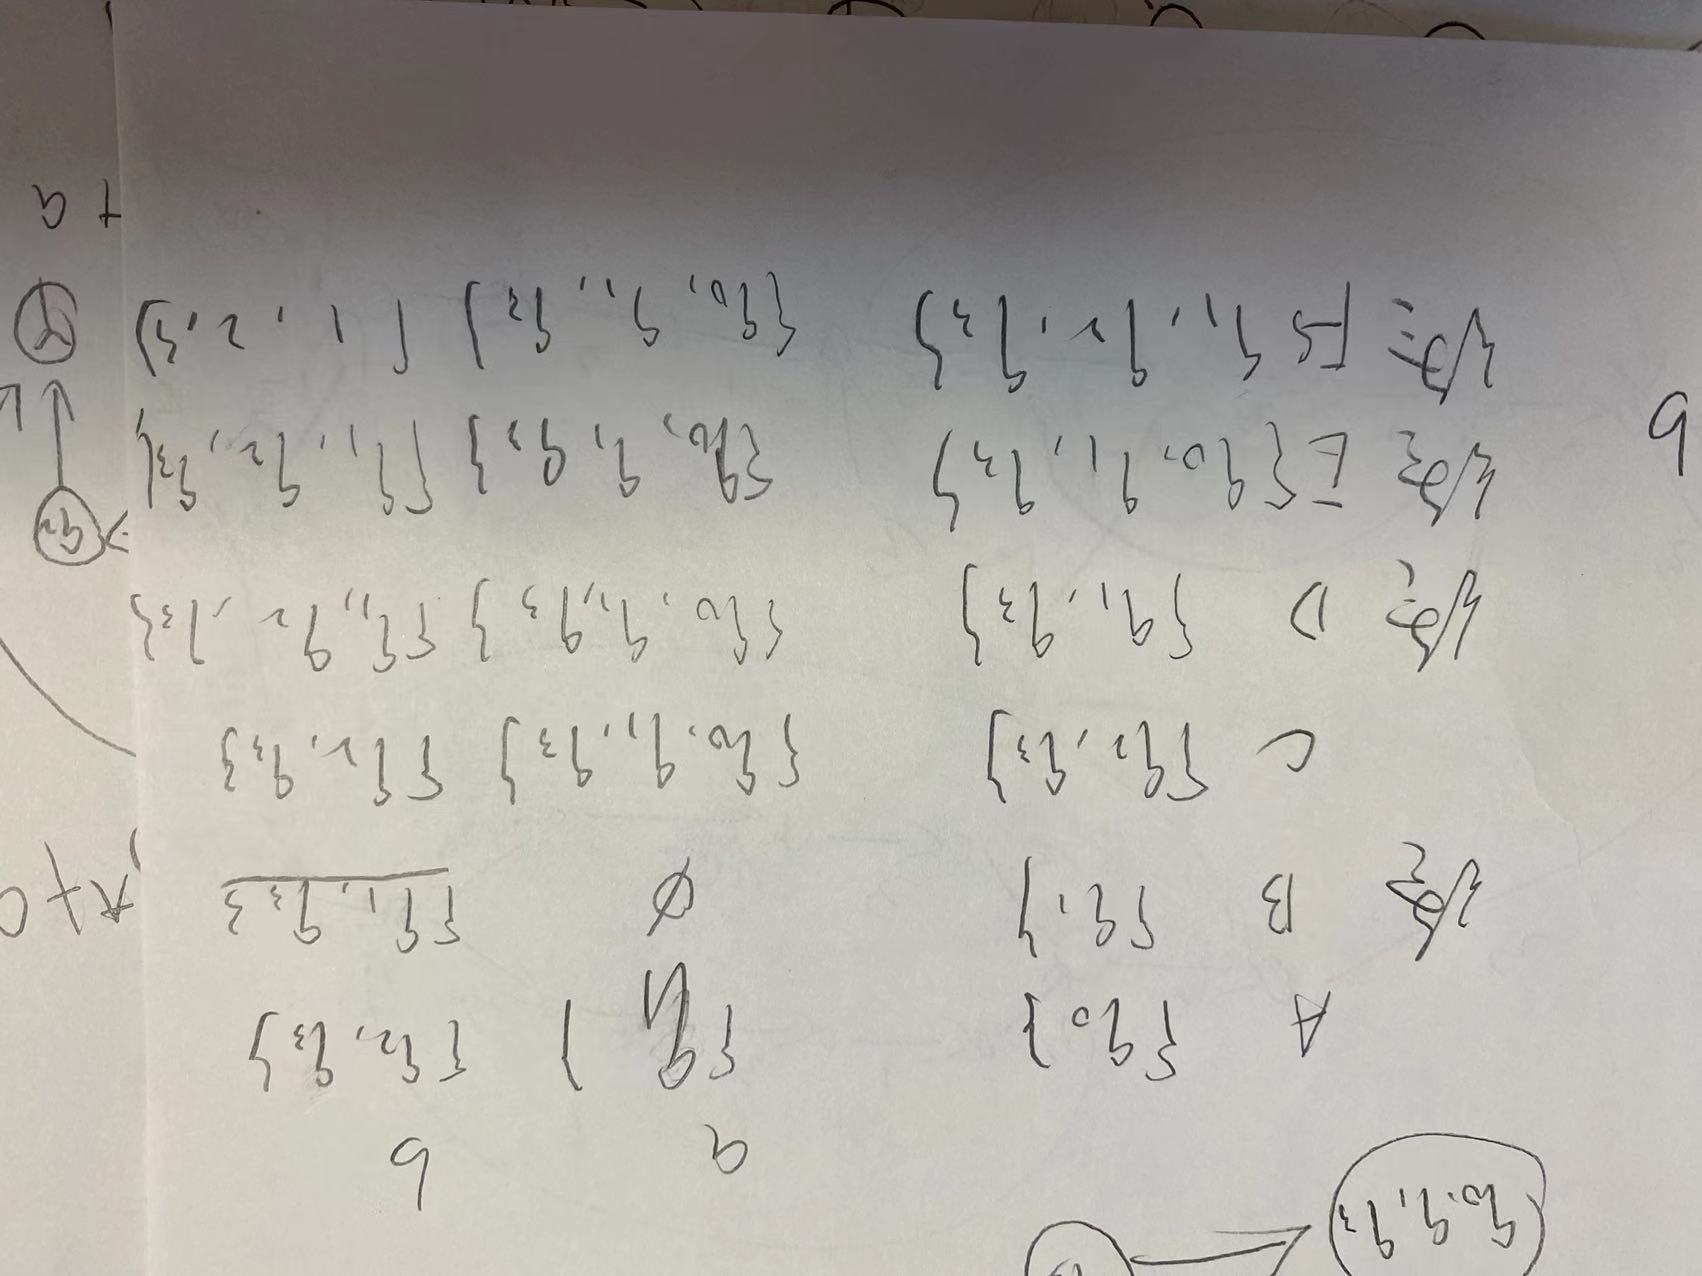 q0, q1, q3
a b
A {q0} {q1} {q2, q3}
终 B {q1} ∅ {q1, q3}
C {q2, q3} {q0, q1, q3} {q2, q3}
终 D {q1, q3} {q0, q1, q3} {q1, q2, q3}
q2
终 E {q0, q1, q3} {q0, q1, q3} {q1, q2, q3}
b
终 F {q1, q2, q3} {q0, q1, q3} { 1, 2, 3}
+ a